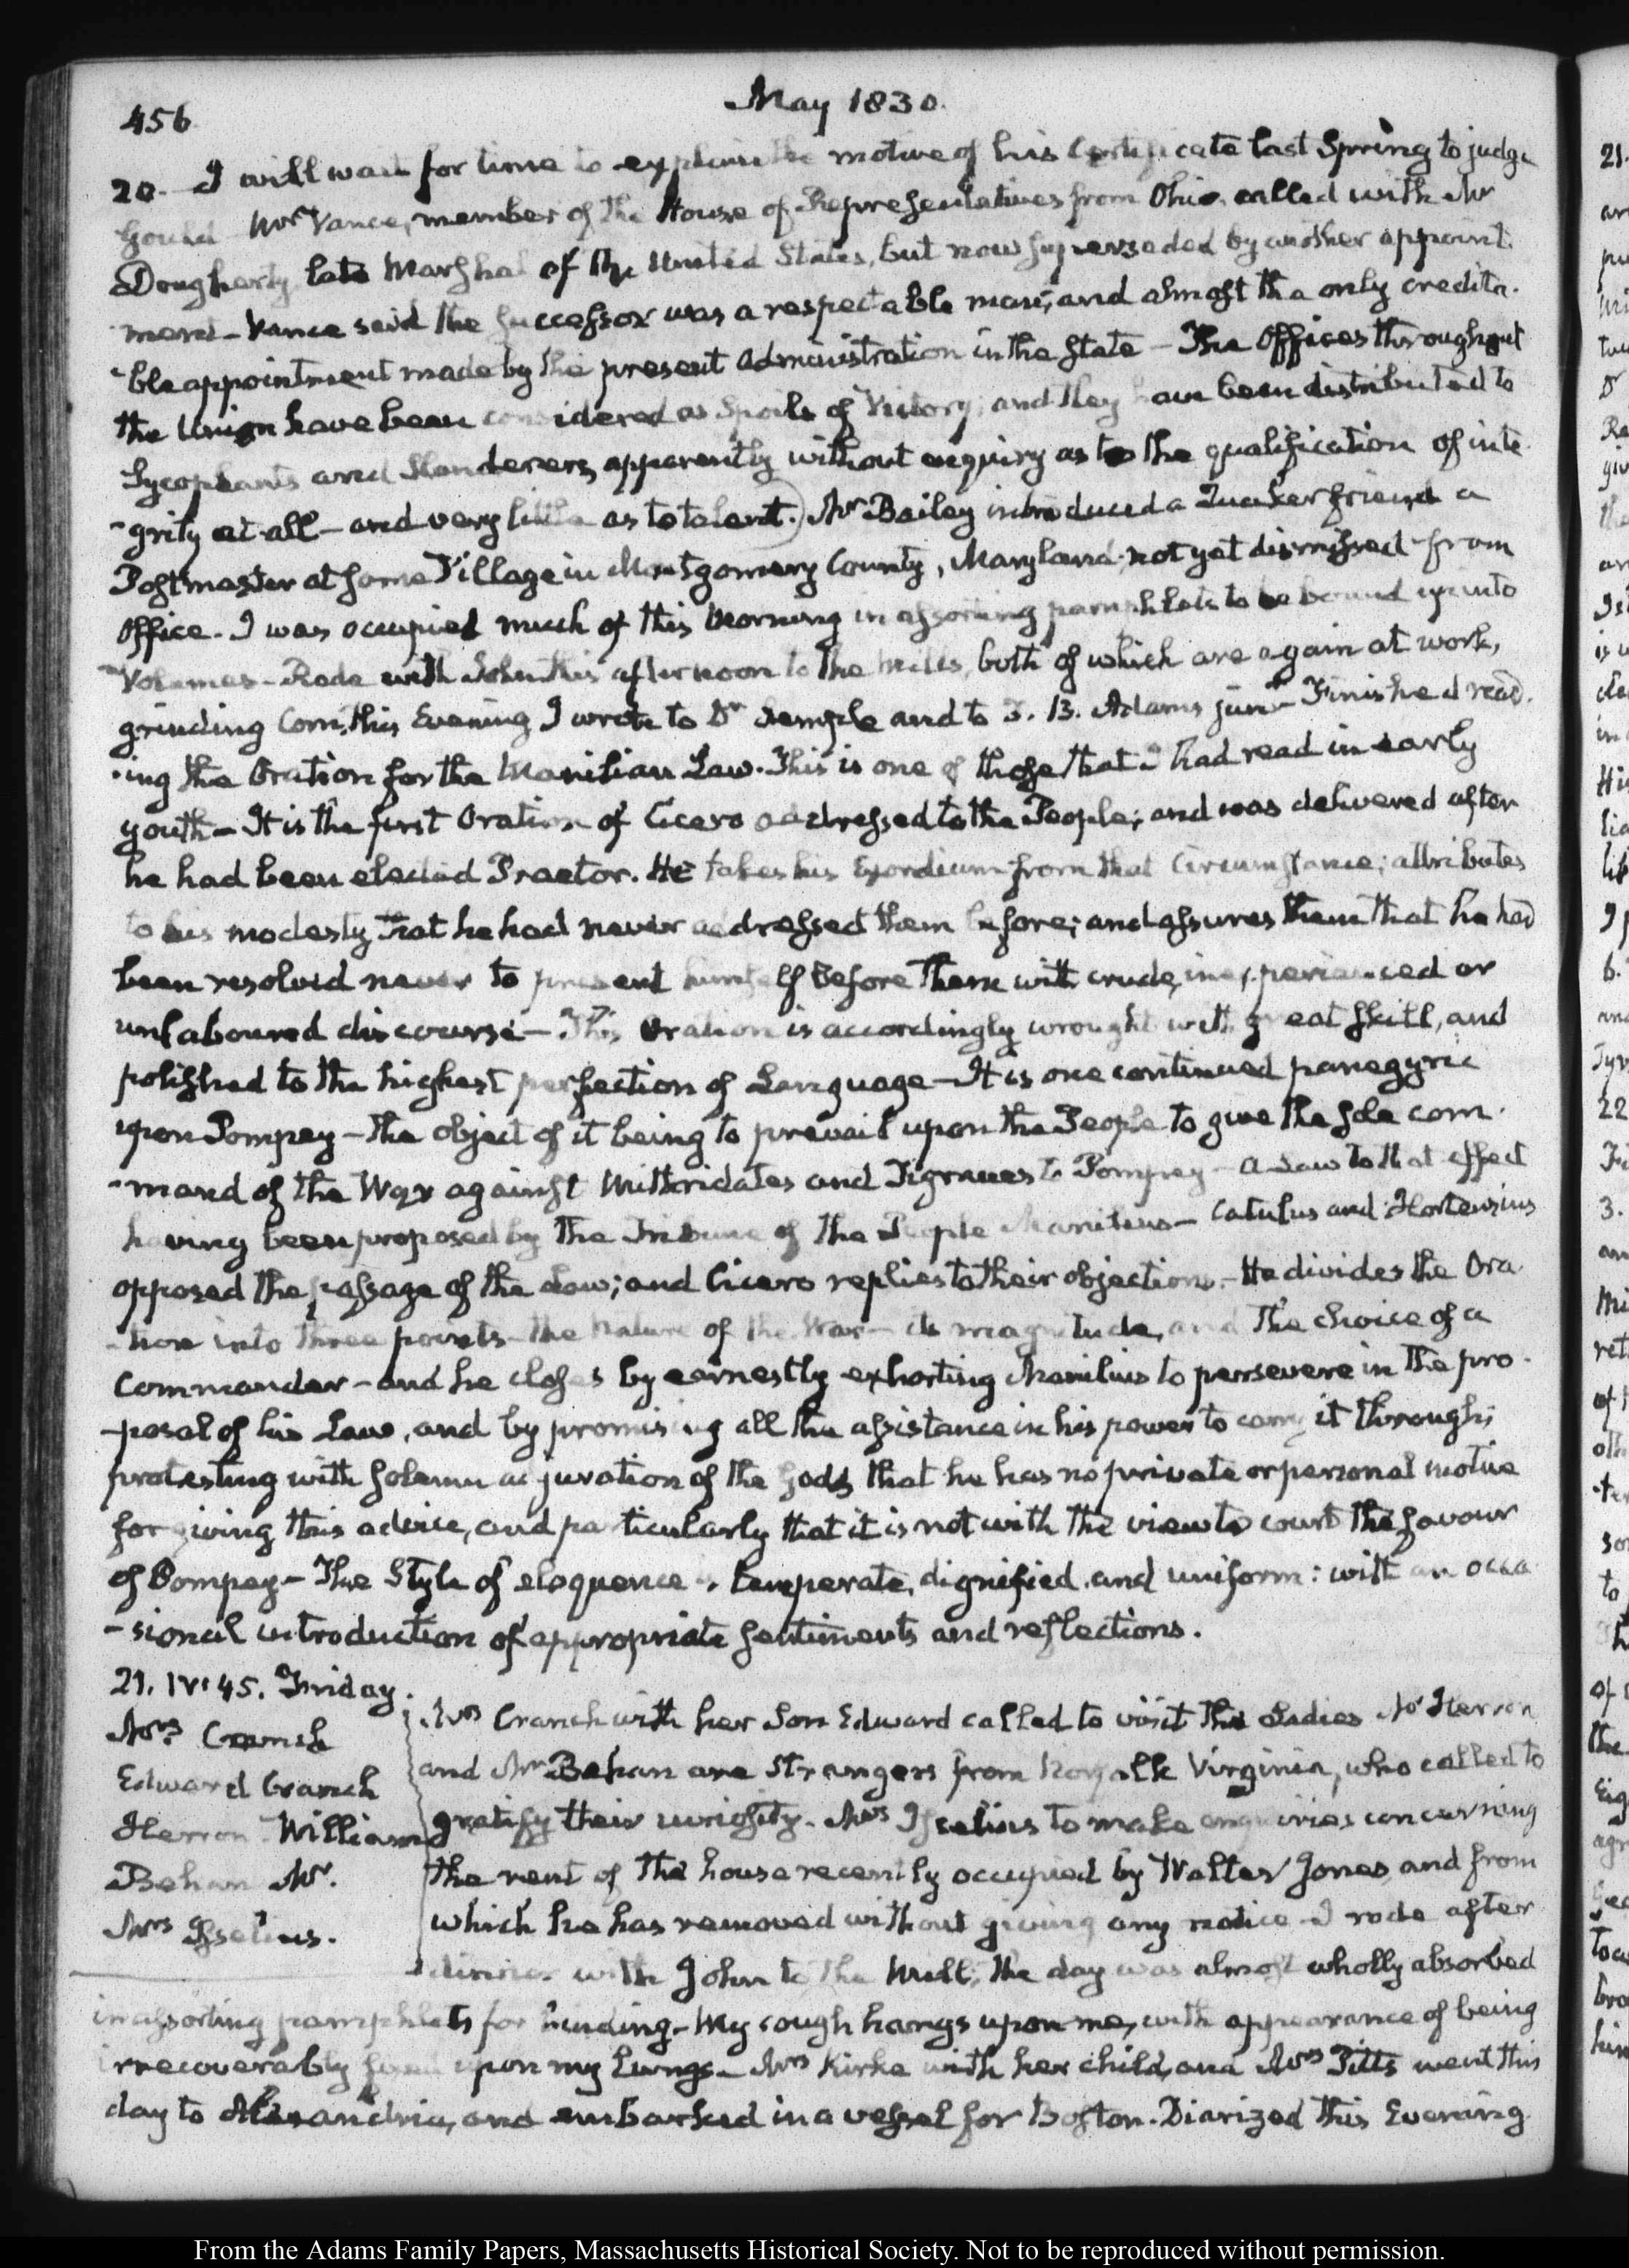 456
May 1830.
20. I will wait for time to explain the motive of his Certificate last Spring to judge
Gould Mr Vance, member of the House of Representatives from Ohio, called with Mr
Dougherty late Marshal of the United States, but now superseded by another appoint-
-ment - Vance said the successor was a respectable man, and almost the only credita-
-ble appointment made by the present Administration in the State - The Offices throughout
the Union have been considered as Spoils of Victory; and they have been distributed to
Sycophants and Slanderers, apparently without enquiry as to the qualification of inte-
-grity at all - and very little as to talent.) Mr Bailey introduced a Quaker friend a
Postmaster at some Village in Montgomery County, Maryland not yet dismissed from
Office. I was occupied much of this Morning in assorting pamphlets to be bound up into
Volumes - Rode with John this afternoon to the Mills, both of which are again at work,
grinding Corn. This Evening I wrote to Dr Semple and to T. B. Adams junr. Finished read-
-ing the Oration for the Manilian Law. This is one of those that I had read in early
youth - It is the first Oration of Cicero addressed to the People; and was delivered after
he had been elected Praetor. He takes his Exordium from that Circumstance; attributes
to his modesty that he had never addressed them before; and assures them that he had
been resolved never to present himself before them with crude, inexperienced or
unlaboured discourse - This Oration is accordingly wrought with great skill, and
polished to the highest perfection of Language - It is one continued panegyric
upon Pompey - the object of it being to prevail upon the People to give the sole com-
-mand of the War against Mithridates and Tigranes to Pompey - a Law to that effect
having been proposed by the Tribune of the People Manilius - Catulus and Hortensius
opposed the passage of the Law; and Cicero replies to their objections - He divides the Ora-
-tion into three points - the nature of the War - its magnitude, and the choice of a
Commander - and he closes by earnestly exhorting Manilius to persevere in the pro-
-posal of his Law, and by promising all the assistance in his power to carry it through;
protesting with solemn adjuration of the Gods that he has no private or personal motive
for giving this advice, and particularly that it is not with the view to court the favour
of Pompey - The Style of eloquence is temperate, dignified, and uniform: with an occa-
-sional introduction of appropriate sentiments and reflections.
21. IV:45. Friday.
Mrs Cranch
Edward Cranch
Herron William
Behan Mr.
Mrs Isselius.
Mrs Cranch with her Son Edward called to visit the Ladies Mr Herron
and Mr Behan are Strangers from Norfolk Virginia, who called to
gratify their curiosity. Mrs Isselius to make enquiries concerning
the rent of the house recently occupied by Walter Jones, and from
which he has removed without giving any notice. I rode after
dinner with John to the Mill; the day was almost wholly absorbed
in assorting pamphlets for binding - My cough hangs upon me, with appearance of being
irrecoverably fixed upon my Lungs - Mrs Kirke with her child, and Mrs Pitts went this
day to Alexandria, and embarked in a vessel for Boston. Diarized this Evening
From the Adams Family Papers, Massachusetts Historical Society. Not to be reproduced without permission.